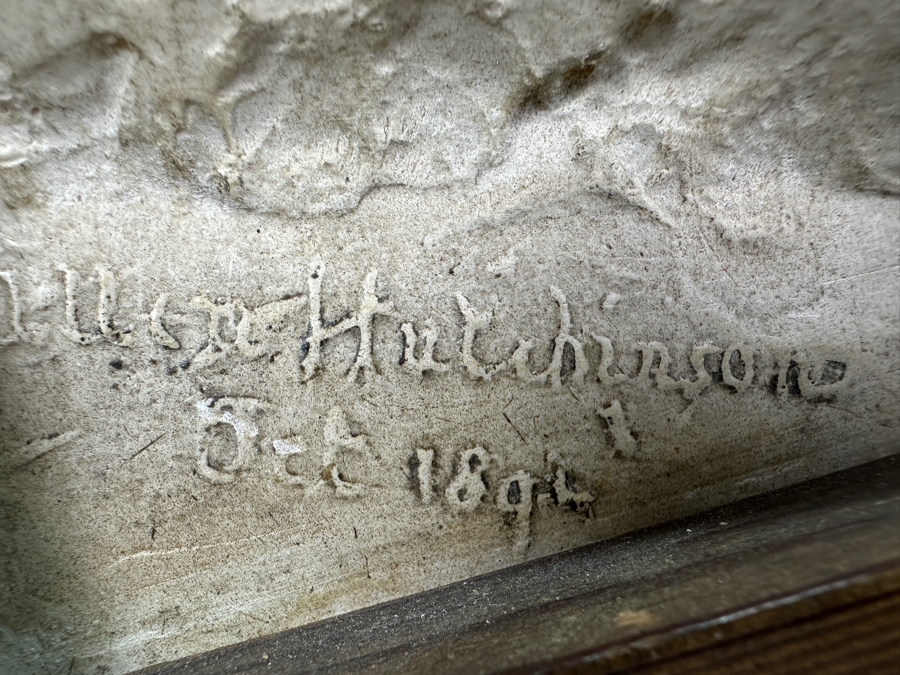 Allen Hutchinson
Oct 1892